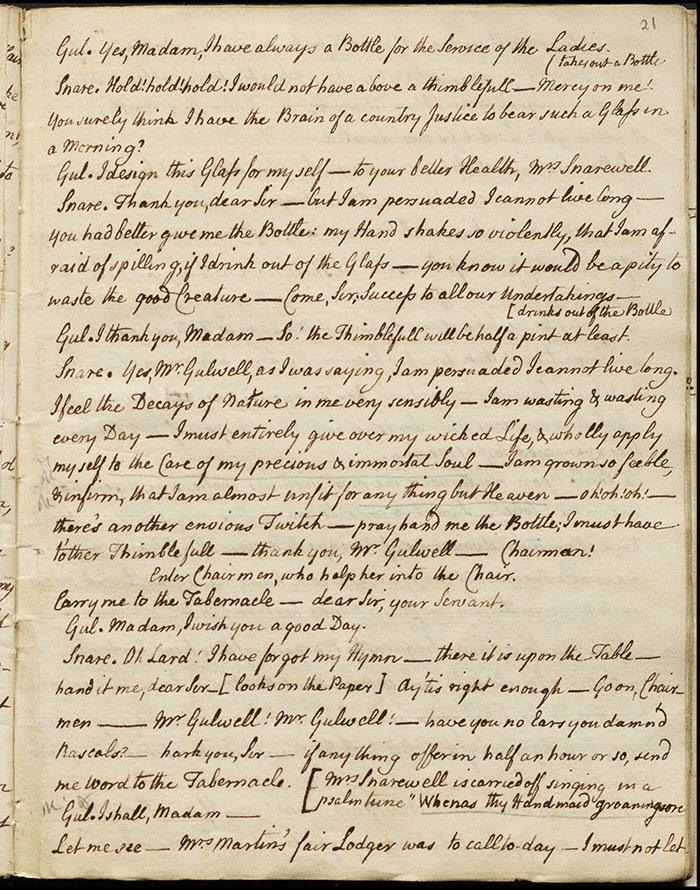 21
Gul. Yes, Madam, I have always a Bottle for the Service of the Ladies.
(takes out a Bottle
Snare. Hold! hold! hold! I would not have above a thimblefull — Mercy on me!
You surely think I have the Brain of a country Justice to bear such a Glaſs in
a Morning?
Gul. I design this Glaſs for myself — to your better Health, Mrs Snarewell.
Snare. Thank you, dear Sir — but I am persuaded I cannot live long —
you had better give me the Bottle: my Hand shakes so violently, that I am af-
raid of spilling, if I drink out of the Glaſs — you know it would be a pity to
waste the good Creature — Come, Sir, Succeſs to all our Undertakings —
[drinks out of the Bottle
Gul. I thank you, Madam — So! the Thimblefull will be half a pint at least.
Snare. Yes, Mr. Gulwell, as I was saying, I am persuaded I cannot live long.
I feel the Decays of Nature in me very sensibly — I am wasting & wasting
every Day — I must entirely give over my wicked Life, & wholly apply
myself to the Care of my precious & immortal Soul — I am grown so feeble,
& infirm, that I am almost unfit for any thing but Heaven — oh! oh! oh! —
there's another envious Twitch — pray hand me the Bottle; I must have
t'other Thimblefull — thank you, Mr. Gulwell — Chairmen!
Enter Chairmen, who help her into the Chair.
Carry me to the Tabernacle — dear Sir, your Servant.
Gul. Madam, I wish you a good Day.
Snare. Oh Lard! I have forgot my Hymn — there it is upon the Table —
hand it me, dear Sir — [looks on the Paper] Ay 'tis right enough — Go on, Chair-
men — Mr. Gulwell! Mr. Gulwell! — have you no Ears you damn'd
Rascals? — hark you, Sir — if any thing offer in half an hour or so, send
me Word to the Tabernacle. [Mrs Snarewell is carried off singing in a
psalm tune "Whenas thy Handmaid groaning sore
Gul. I shall, Madam —
Let me see — Mrs Martin's fair Lodger was to call to-day — I must not let